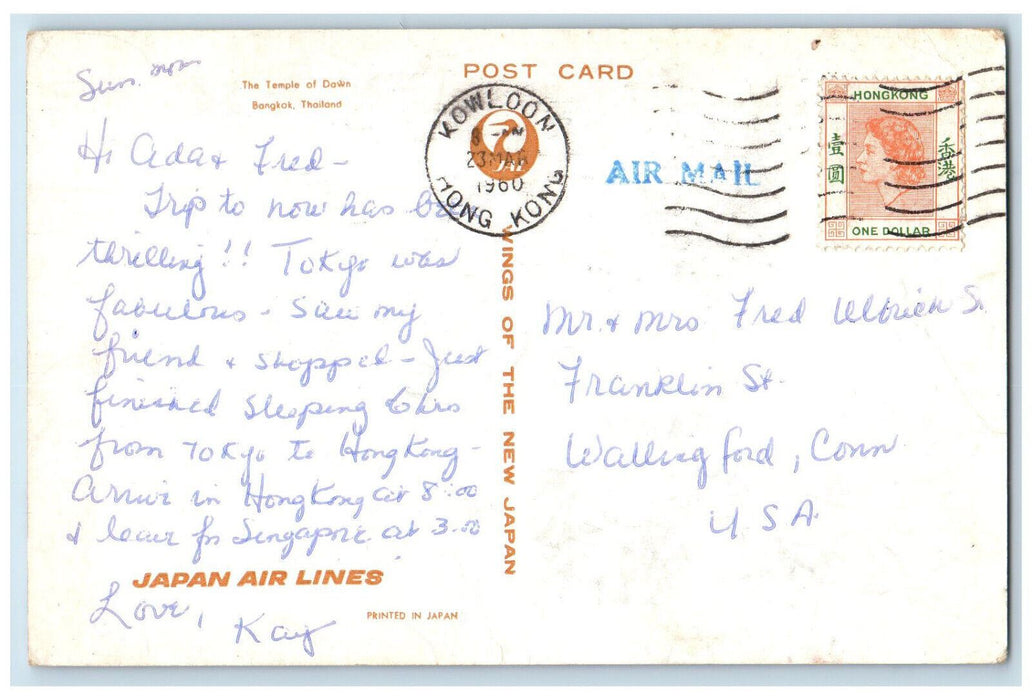 Sun. morn
The Temple of Dawn
Bangkok, Thailand
Hi Ada + Fred -
Trip to now has been
thrilling!! Tokyo was
fabulous - Saw my
friend + shopped - Just
finished sleeping 6 hrs
from Tokyo to Hong Kong -
Arrive in Hong Kong at 8:00
+ leave for Singapore at 3:00
JAPAN AIR LINES
Love,
Kay
PRINTED IN JAPAN
POST CARD
KOWLOON
23 MAR
1960
HONG KONG
JAL
WINGS OF THE NEW JAPAN
AIR MAIL
HONGKONG
壹圓
香港
ONE DOLLAR
Mr. + Mrs Fred Ulbrich Sr.
Franklin St.
Wallingford, Conn
USA